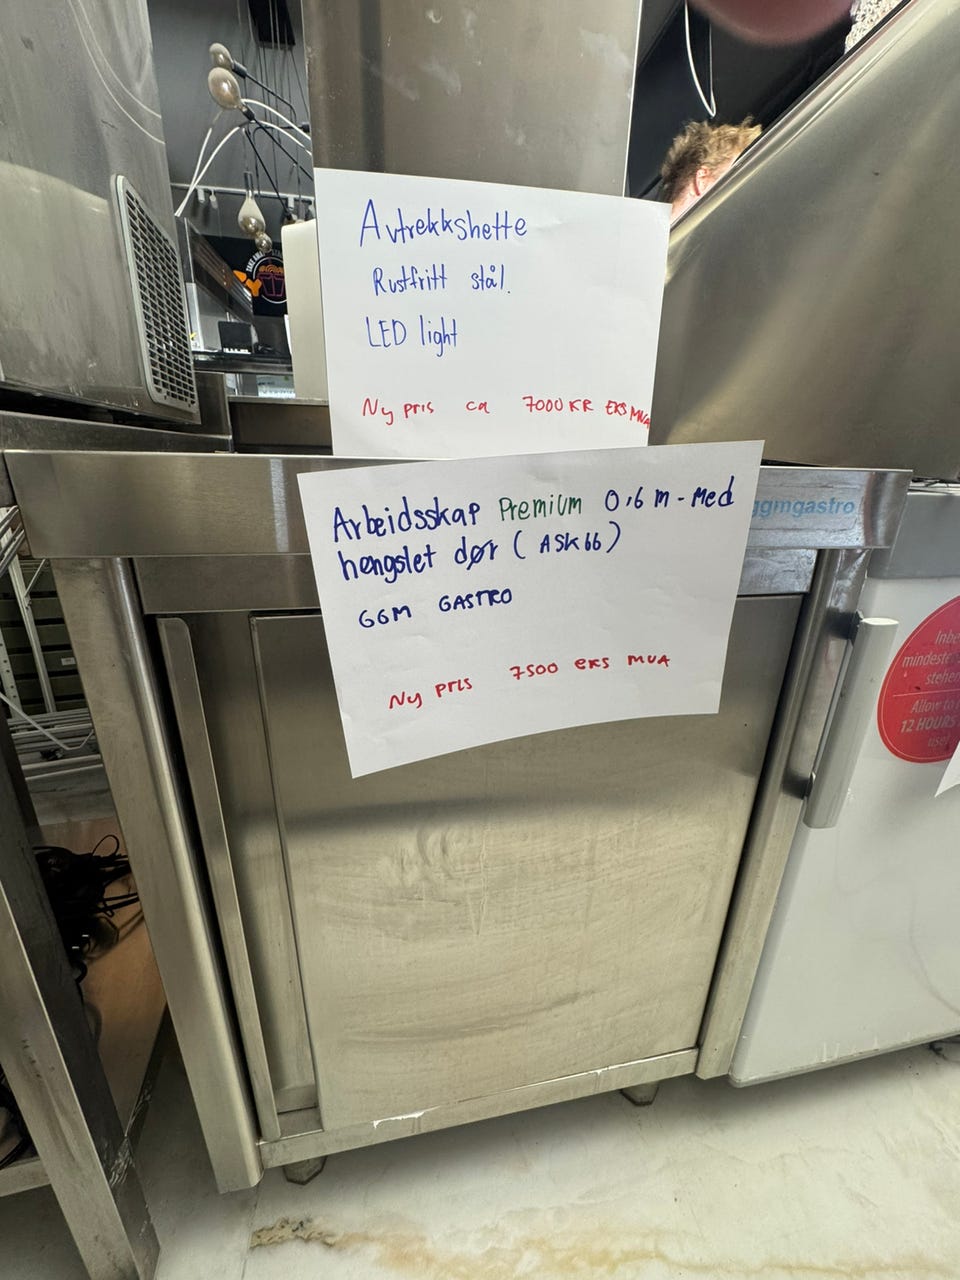 Avtrekkshette
Rustfritt stål.
LED light
Ny pris ca 7000 KR EKS MVA
Arbeidsskap Premium 0,6 m - med
hengslet dør (ASK66)
GGM GASTRO
Ny pris 7500 eks MVA
ggmgastro
mindeste
stehe
Allow to
12 HOURS
use
TAKE AWAY